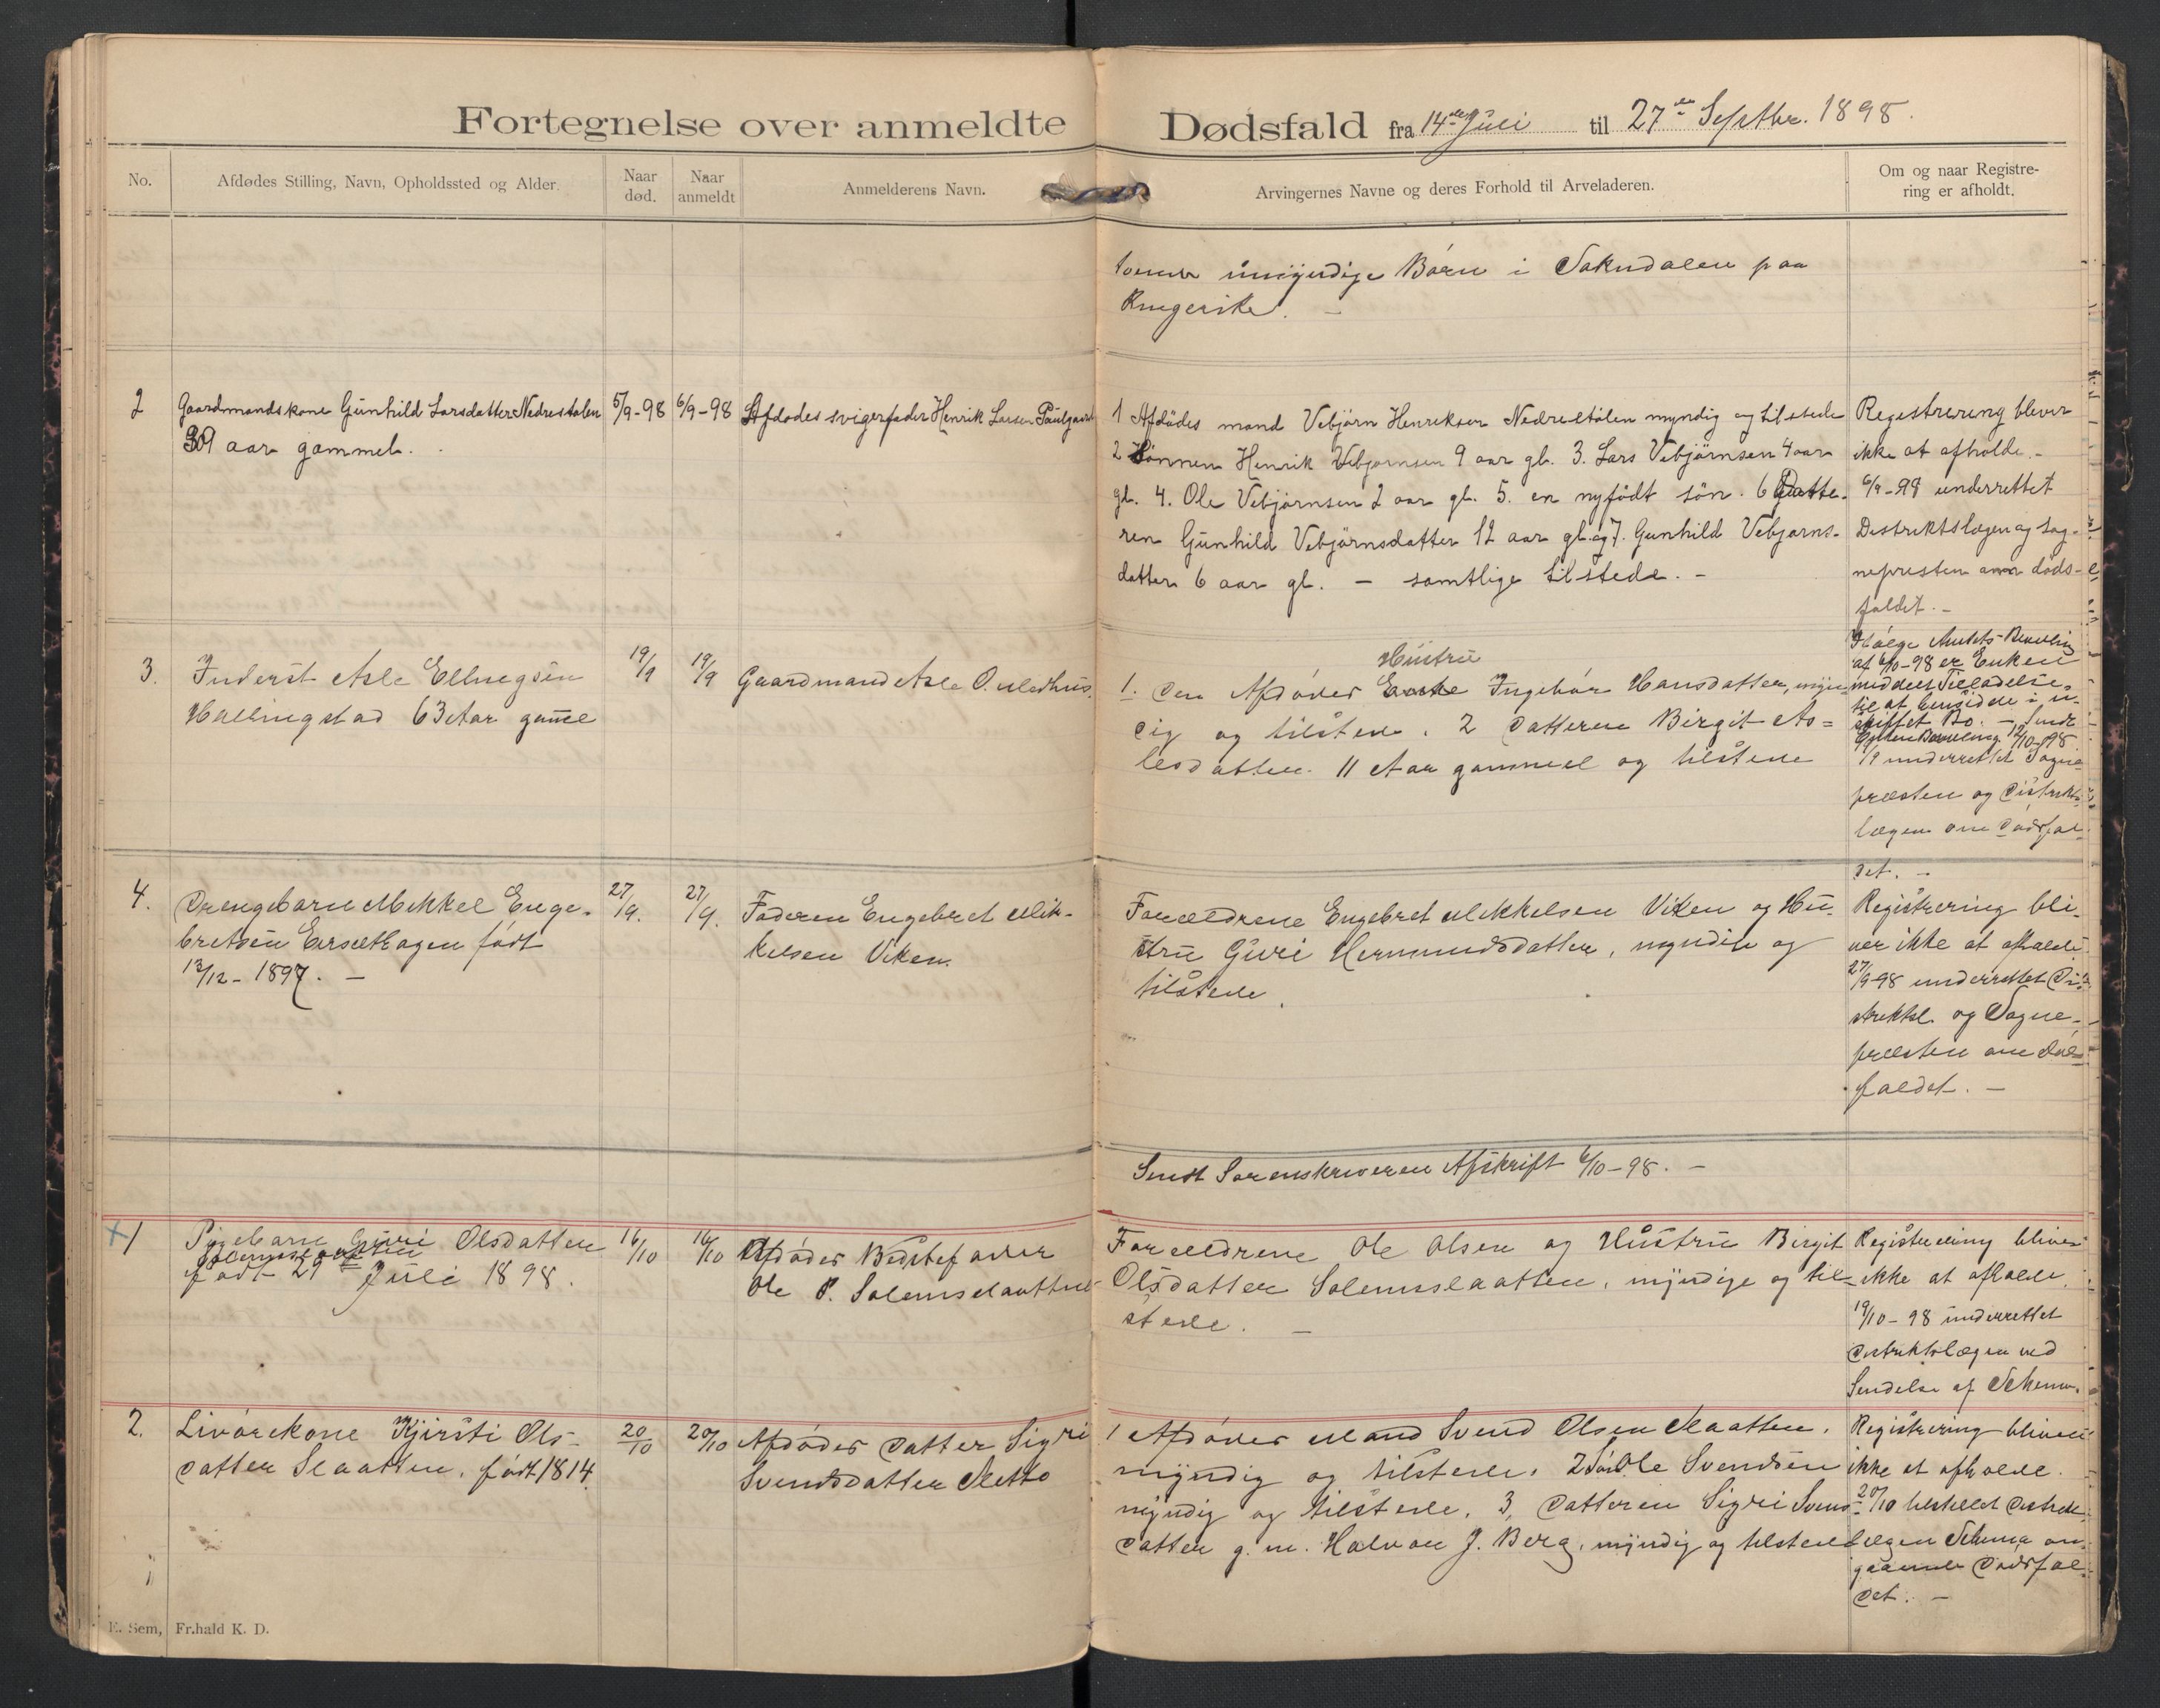 Fortegnelse over anmeldte Dødsfald fra 14de Juli til 27de Septbr. 1898.
No.
Afdødes Stilling, Navn, Opholdssted og Alder.
Naar død.
Naar anmeldt
Anmelderens Navn.
Arvingernes Navne og deres Forhold til Arveladeren.
Om og naar Registre-
ring er afholdt.
umyndige Børn i Soknedalen paa
Ringerike. –
2
Gaardmandskone Gunhild Larsdatter Nedrestølen
39 aar gammel.
5/9-98
6/9-98
Afdødes svigerfader Henrik Larsen Paulgaard
1 Afdødes mand Vebjørn Henriksen Nedrestølen myndig og tilstede
2 Sønnen Henrik Vebjørnsen 9 aar gl. 3. Lars Vebjørnsen 4 aar
gl. 4. Ole Vebjørnsen 2 aar gl. 5. en nyfødt søn. 6 Datte-
ren Gunhild Vebjørnsdatter 12 aar gl. og 7. Gunhild Vebjørns-
datter 6 aar gl. – samtlige tilstede. –
Registrering bliver
ikke at afholde. –
6/9-98 underrettet
Distriktslægen og sog-
nepresten om døds-
faldet. –
3.
Inderst Asle Ellingsen
Hallingstad 63 Aar gammel
19/9
19/9
Gaardmand Asle O.
Hustru
1. Den Afdødes Enke Ingebór Hansdatter, myn-
dig og tilstede. 2 Datteren Birgit As-
lesdatter 11 Aar gammel og tilstede
Ifølge Amtets Bevilling
af 6/10-98 er Enken
meddelt Tilladelse
til at hensidde i u-
skiftet Bo. – Sendt
Enken Bevilling 12/10-98.
19/9 underrettet Sogne-
præsten og Distrikts-
lægen om Dødsfal-
det. –
4.
Drengebarn Mikkel Enge-
bretsen Eriksethagen født
13/12-1897. –
27/9.
27/9.
Faderen Engebret Mik-
kelsen Viken.
Forældrene Engebret Mikkelsen Viken og Hu-
stru Guri Hermundsdatter, myndige og
tilstede.
Registrering bli-
ver ikke at afholde.
27/9-98 underrettet Di-
striktsl. og Sogne-
præsten om Døds-
faldet. –
Sendt Sorenskriveren Afskrift 6/10-98. –
+ 1
Pigebarn Guri Olsdatter
Solemslaatten
født 29de Juli 1898.
16/10
16/10
Afdødes Bedstefader
Ole P. Solemslaatten
Forældrene Ole Olsen og Hustru Birgit
Olsdatter Solemslaatten, myndige og til-
stede. –
Registrering bliver
ikke at afholde.
19/10-98 underrettet
Distriktslægen ved
Sendelse af Schema.
2.
Livørekone Kjirsti Ols-
datter Slaatten, født 1814.
20/10
20/10
Afdødes Datter Sigri
Svendsdatter Sletto
1 Afdødes Mand Svend Olsen Slaatten,
myndig og tilstede. 2 Søn Ole Svendsen
myndig og tilstede. 3, Datteren Sigri Svens-
datter g. m. Halvor J. Berg, myndig og tilstede
Registrering bliver
ikke at afholde.
20/10 tilstillet Distrikts-
lægen Schema an-
gaaende Dødsfal-
det. –
E. Sem, Fr.hald K. D.